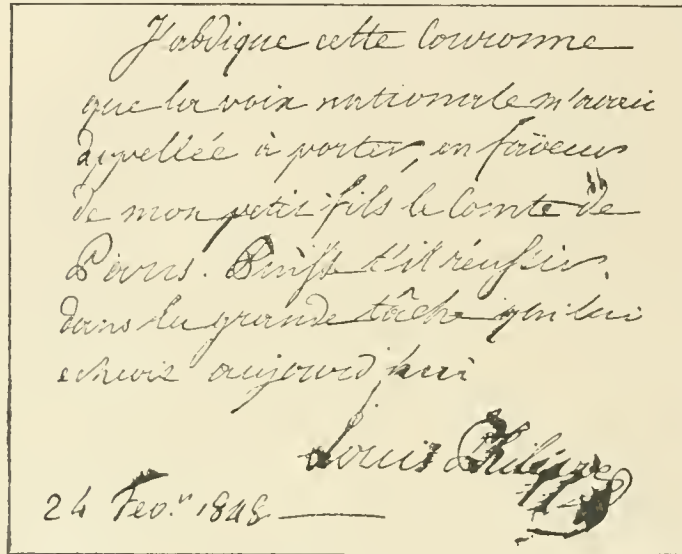 J'abdique cette Couronne
que la voix nationale m'avait
appellée à porter, en faveur
de mon petit fils le Comte de
Paris. Puisse t'il réussir
dans la grande tâche qui lui
echoit aujourd'hui
Louis Philippe
24 Fev.r 1848